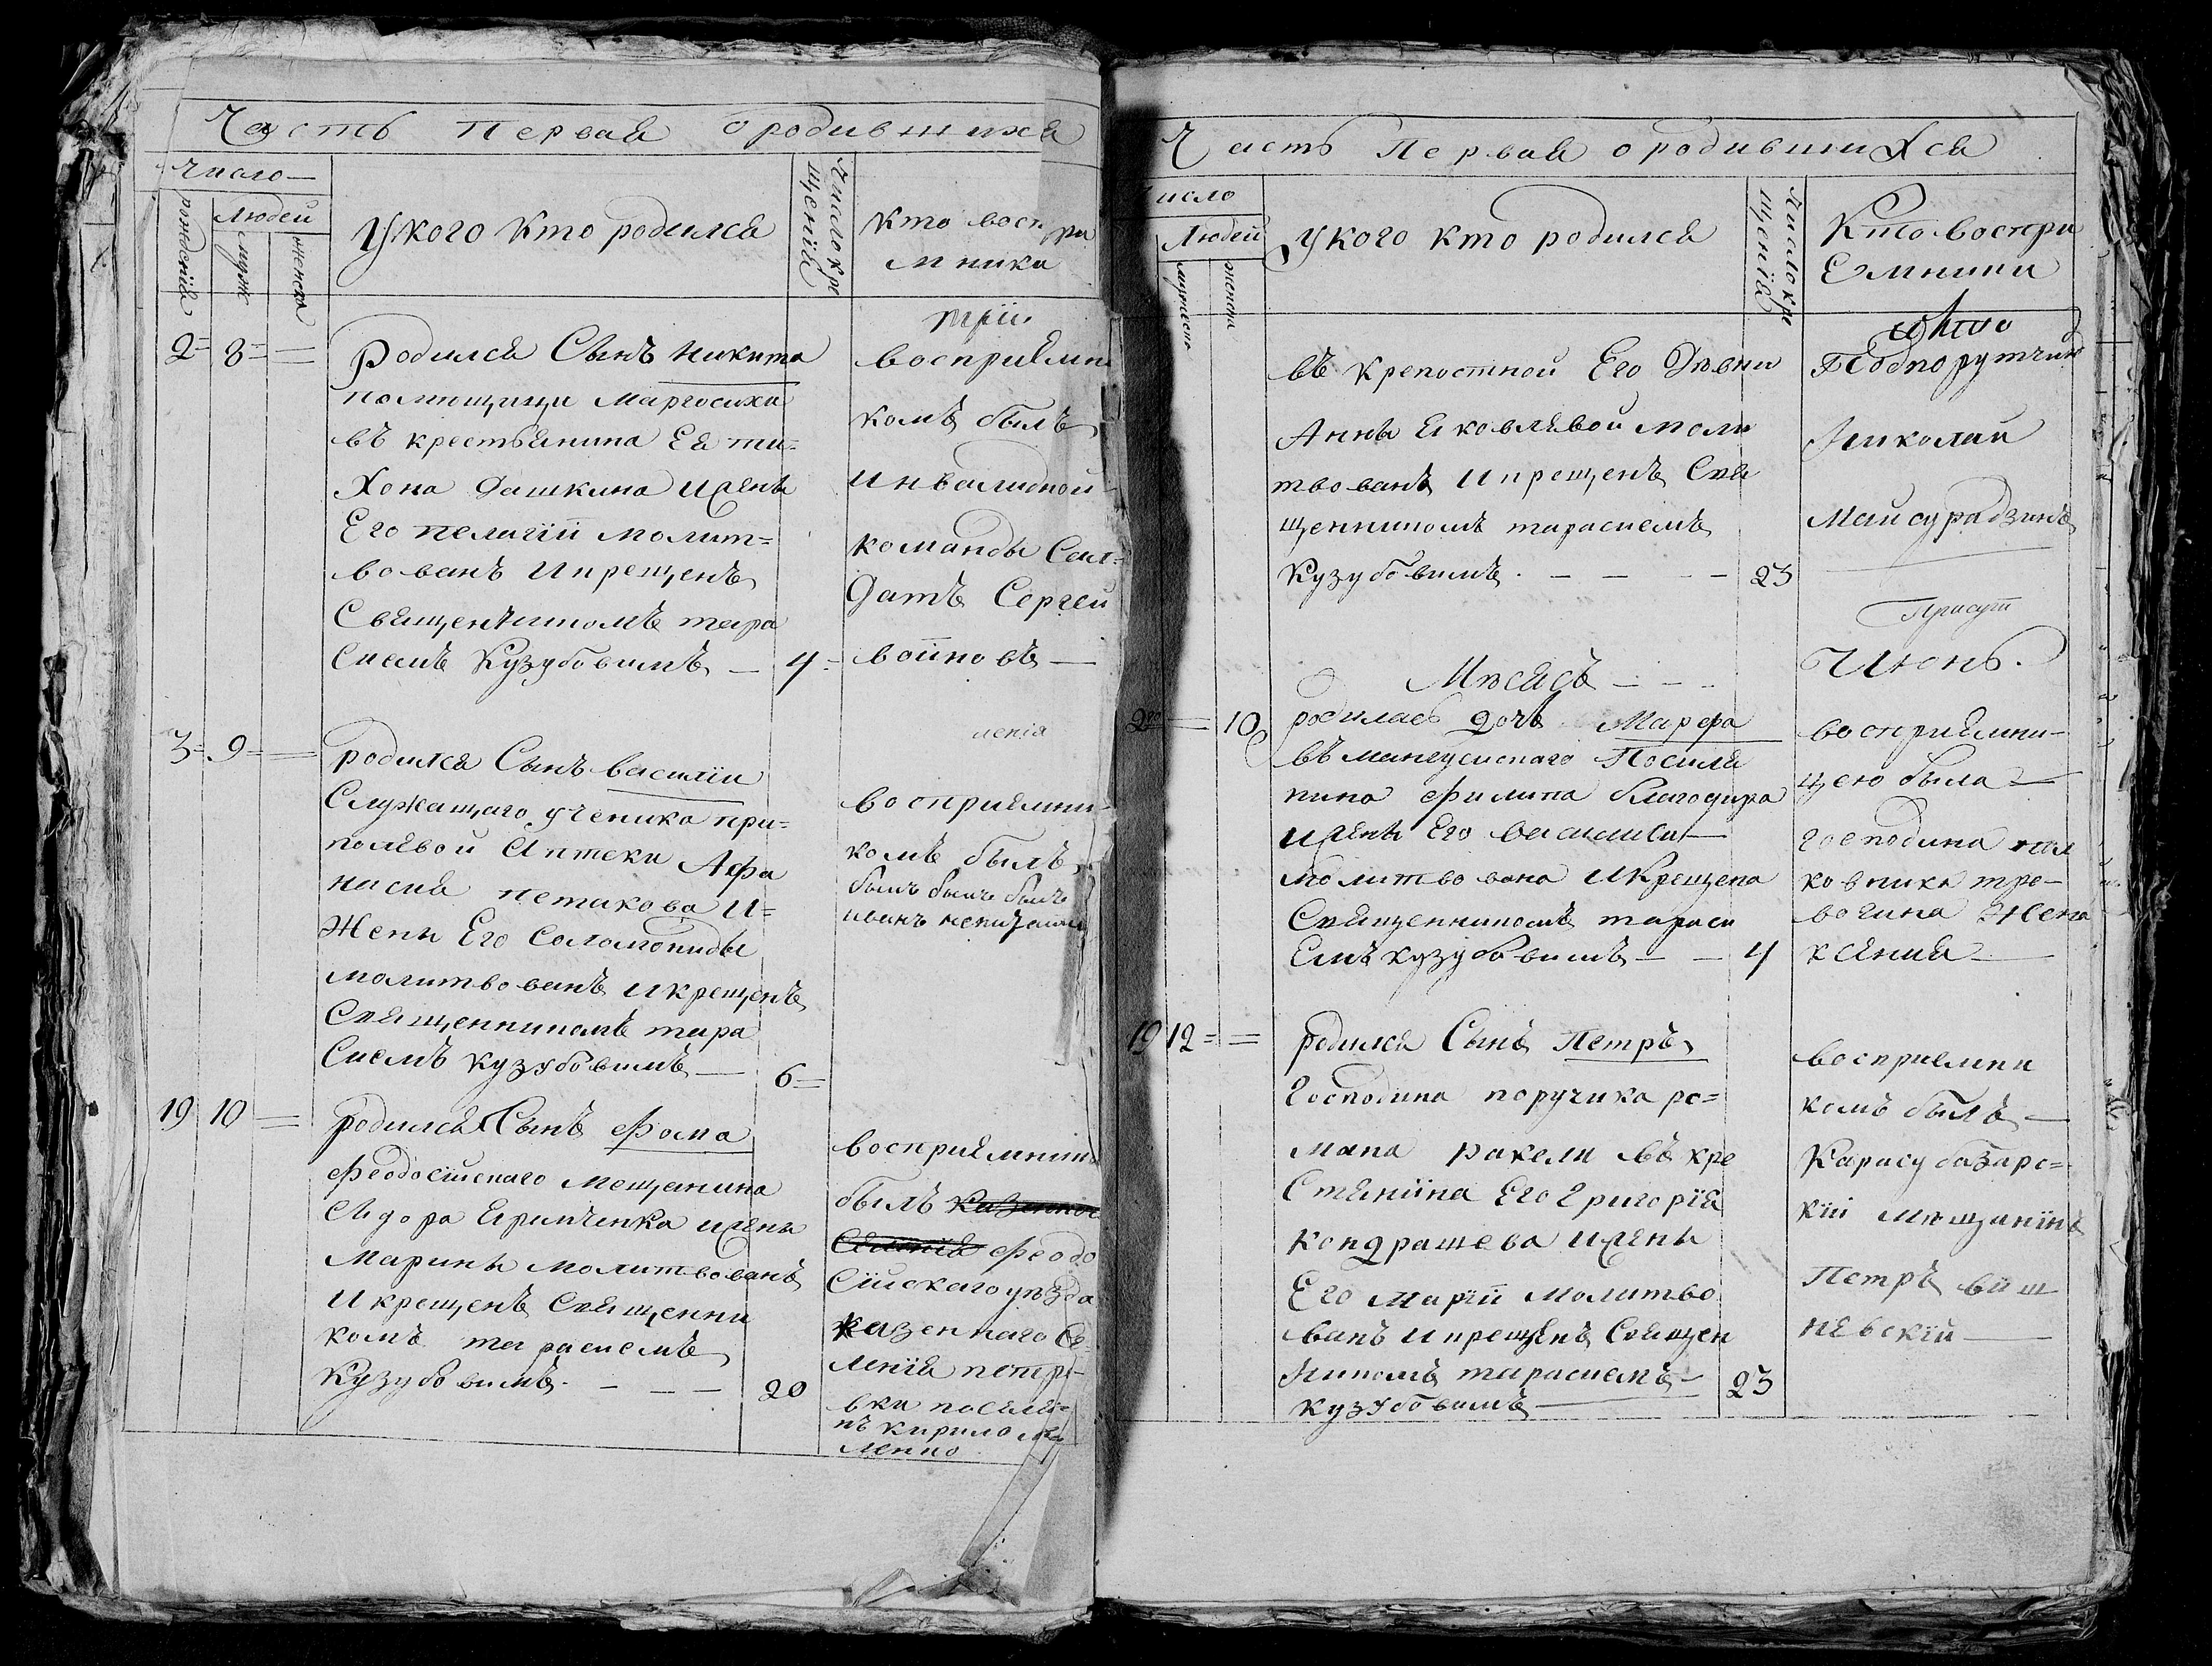 Часть первая о родившихся
Число
рождѣнія
Людей
муж
женска
У кого кто родился
Число кре
щенія
Кто воспри
мники
2 8 Родился Сынъ Никита
помещицы
въ крестьянина Ея Ти=
хона Дашкина и жены
Его Пелагіи молит=
вованъ и крещенъ
Священникомъ Тара
сиемъ Кузубовимъ 4
восприемни
комъ былъ
инвалидной
команды Сал=
датъ Сергей
Войновъ
3 9 родился Сынъ Василіи
Служащаго ученика при=
полевой Аптеки Афа
насия Петакова и=
Жены Его Соломониды
молитвованъ и крещенъ
Священникомъ Тара
сиемъ Кузубовимъ 6
ленія
восприемни
комъ былъ
былъ былъ былъ
иванъ
19 10 родился Сынъ Фома
Феодосійскаго мещанина
Сидора Ефимченка и жены
Марины молитвованъ
и крещенъ Священни
комъ Тарасиемъ
Кузубовимъ 20
восприемник
былъ казенна
Селенія Феодо
сійскаго уѣзда
казеннаго Се
ленія Петро
вки поселя
нъ Кирило
ленко
Часть Первая о родившихся
исло
Людей
мужеска
женска
У кого кто родился
Число кре
щенія
Кто воспри
Емники
въ крепостной Его Дѣвки
Анны Яковлевой моли
твованъ и крещенъ Свя
щенникомъ Тарасиемъ
Кузубовимъ 23
Подпорутчик
Николай
Майсурадзинъ
Мѣсяцъ
Июнь.
2го 10 родилась дочь Марфа
въ поселя
нина Филипа Благодира
и жены Его Василиси
молитвована и крещена
Священникомъ Тараси
Емъ Кузубовимъ 4
восприемни
цею была
господина пол
ковника Тре
вогина Жена
Ксения
19 12 родился Сынъ Петръ
Господина поручика Ро=
мана Ракели въ кре
стянина Его Григорія
Кондрашева и жены
Его Маріи молитво
ванъ и крещенъ Священ
никомъ Тарасиемъ
Кузубовимъ 23
восприемни
комъ былъ
Карасубазарс=
кій мещанинъ
Петръ Виш
невскій